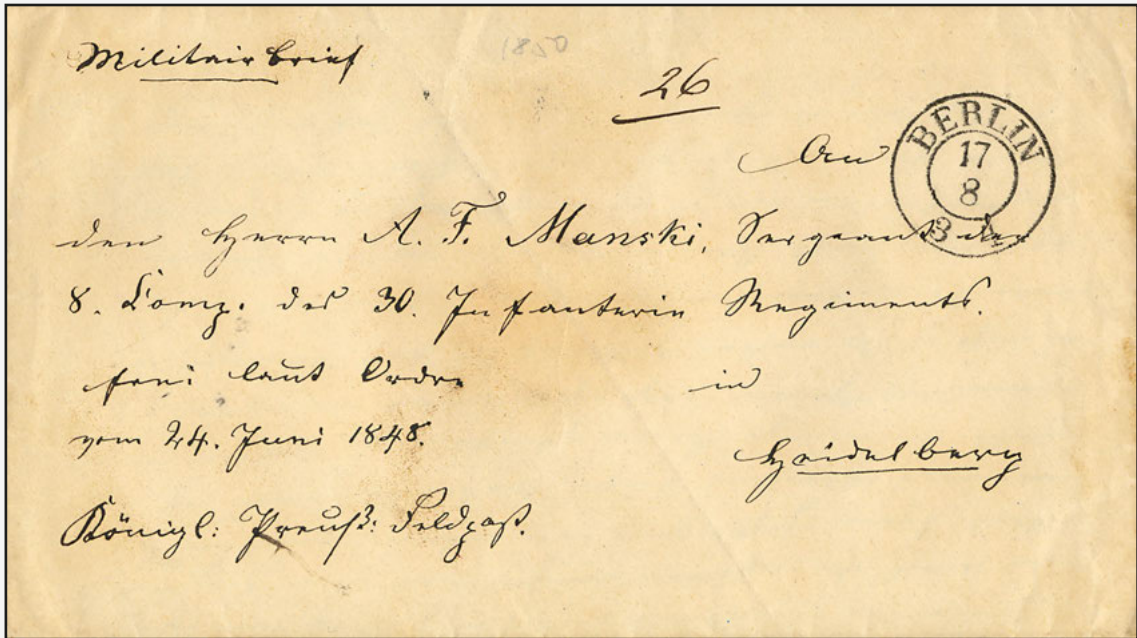 Militairbrief
1850
26
An
BERLIN
17
8
3
den Herrn A. F. Manski, Sergeant der
8. Comp. des 30. Infanterie Regiments.
frei laut Ordre
in
vom 24. Juni 1848.
Heidelberg
Königl: Preuß: Feldpost.